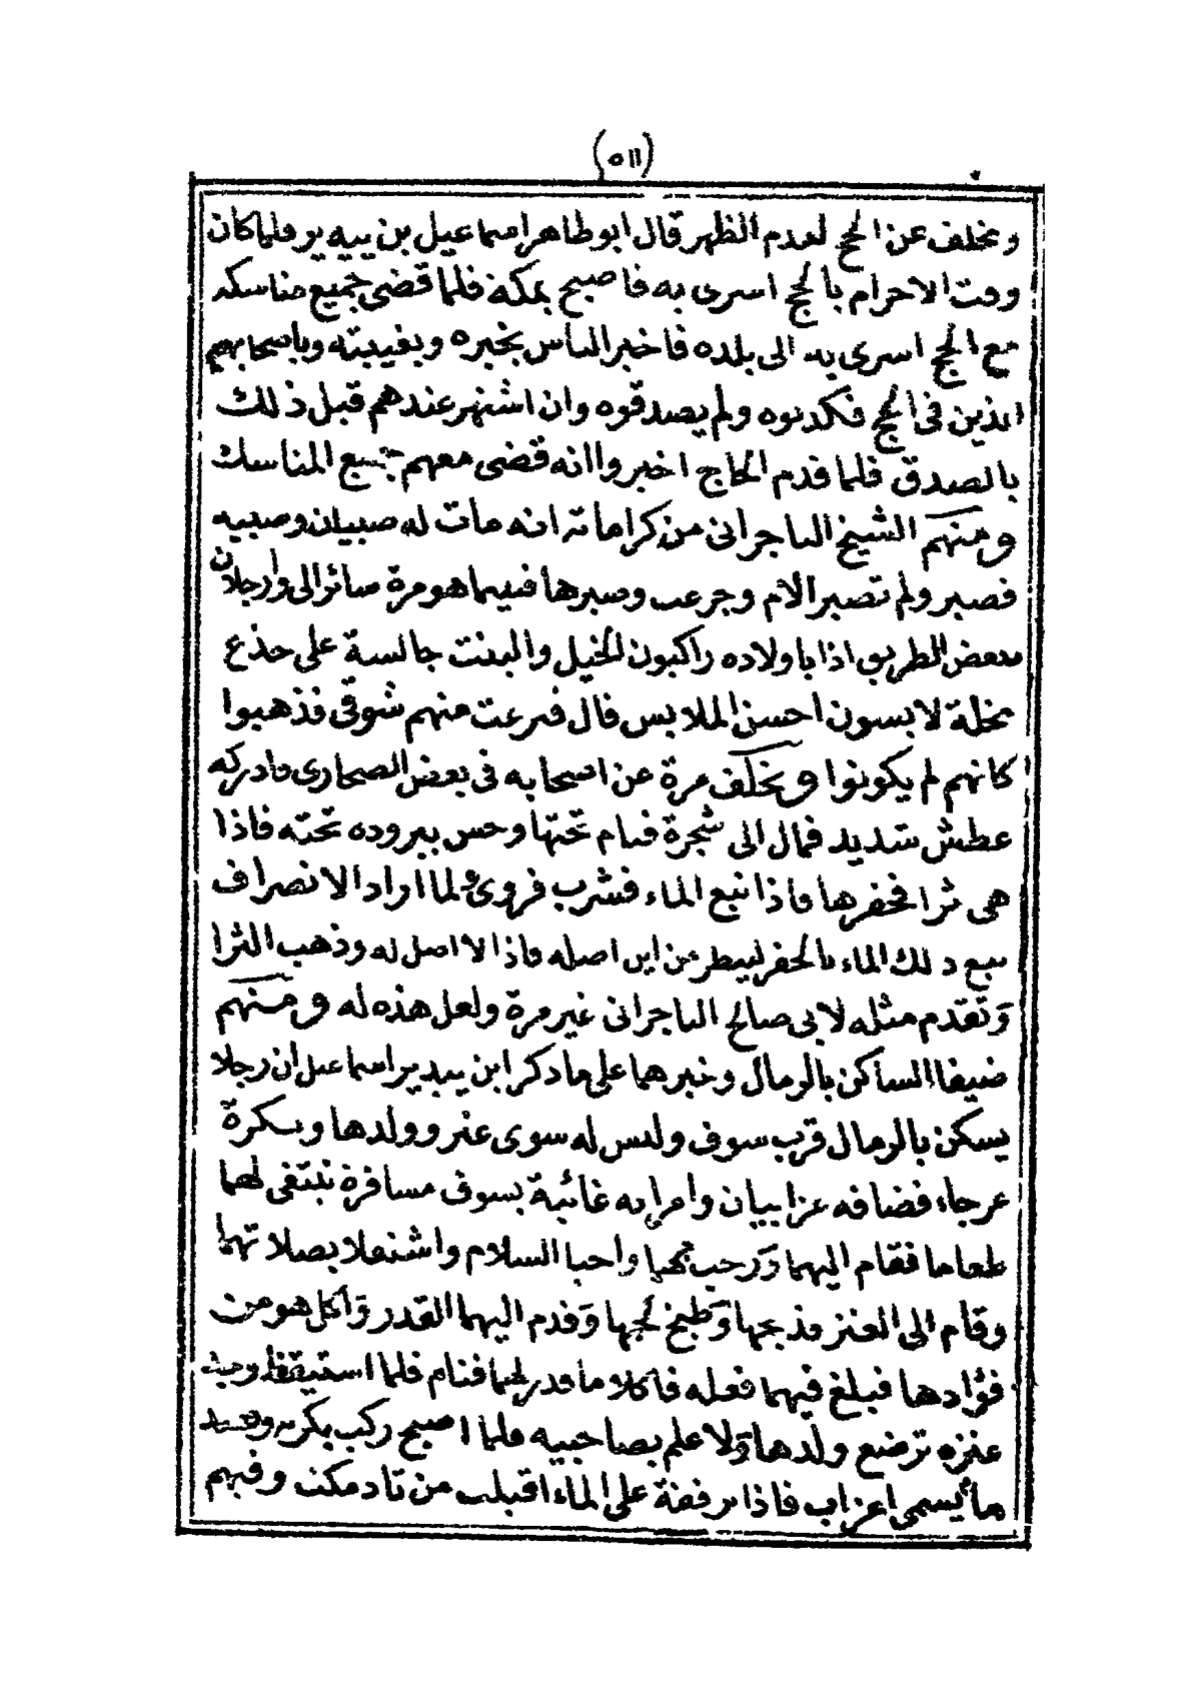 (٥١١)
وتخلف عن الحج لعدم الظهر قال ابو طاهر اسماعيل بن يبيدير فلما كان
وقت الاحرام بالحج اسرى به فاصبح بمكة فلما قضى جميع مناسكه
مع الحج اسرى به الى بلده فاخبر الناس بخبره وبغيبته وباصحابهم
الذين في الحج فكذبوه ولم يصدقوه وان اشتهر عندهم قبل ذلك
بالصدق فلما قدم الحاج اخبروا انه قضى معهم جميع المناسك
ومنهم الشيخ الباجراني من كراماته انه مات له صبيان وصبيه
فصبر ولم تصبر الام وجزعت وصبرها فبينما هو مرة سائر الى وارجلان
ببعض الطريق اذا باولاده راكبون الخيل والبنت جالسة على جذع
نخلة لابسون احسن الملابس قال فسرعت منهم شوقى فذهبوا
كانهم لم يكونوا وتخلف مرة عن اصحابه في بعض الصحارى فادركه
عطش شديد فمال الى شجرة فنام تحتها وحس ببروده تحته فاذا
هي ثرا فحفرها فاذا نبع الماء فشرب فروى ولما اراد الانصراف
تبع ذلك الماء بالحفر لينظر من اين اصله فاذا لا اصل له وذهب الثرا
وتقدم مثله لابى صالح الباجرانى غير مرة ولعل هذه له ومنهم
ضيفا الساكن بالرمال وخبرهما على ما ذكر ابن يبيدير اسماعيل ان رجلا
يسكن بالرمال قرب سوف وليس له سوى عنز وولدها وبكرة
عرجاء فضافه عزابيان وامراته غائبة بسوف مسافرة تبتغى لهما
طعاما فقام اليهما ورحب بهما واحبا السلام واشتغلا بصلاتهما
وقام الى العنز فذبحها وطبخ لحمها وقدم اليهما القدر واكل هو من
فؤادها فبلغ فيهما فعله فاكلا ما قدر لهما فنام فلما استيقظ وجد
عنزه ترضع ولدها ولا علم بصاحبيه فلما اصبح ركب بكرته وقصد
ما يسمى اعزاب فاذا برفقة على الماء اقبلت من تادمكت وفيهم